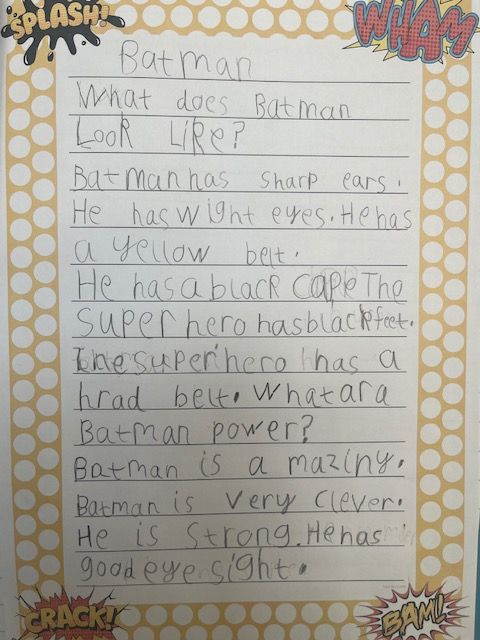 SPLASH!
WHAM
Batman
What does Batman
Look Like?
Batman has sharp ears.
He has wight eyes. He has
a yellow belt.
He has a black cape The
super hero has black feet.
The super hero has a
hrad belt. What ara
Batman power?
Batman is a maziny.
Batman is very clever.
He is strong. He has
good eye sight.
CRACK!
BAM!